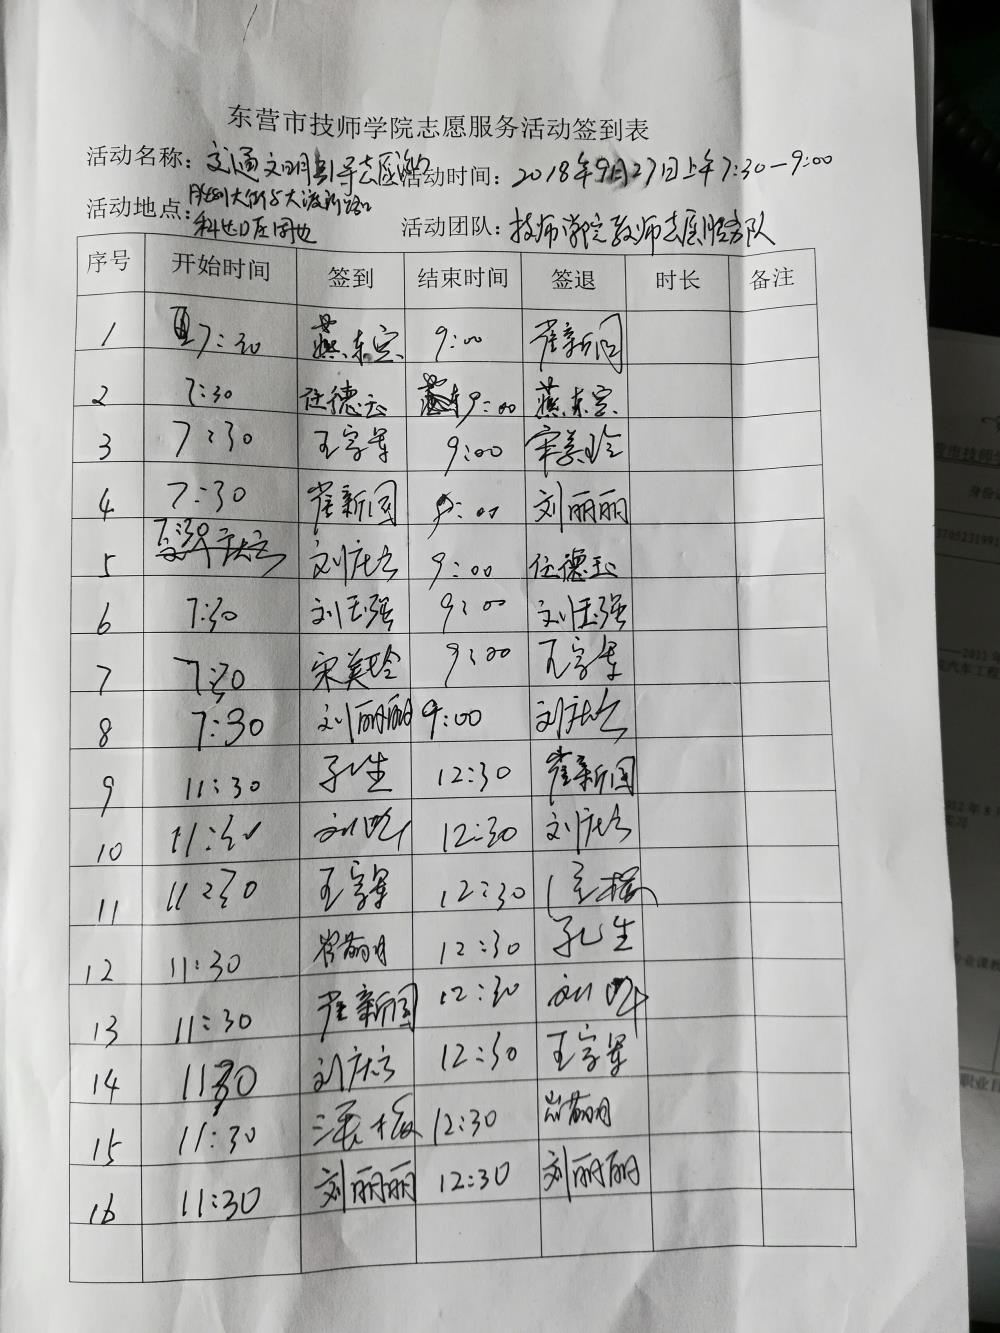 东营市技师学院志愿服务活动签到表
活动名称：交通文明引导志愿 活动时间：2018年9月27日上午7:30-9:00
活动地点：胜利大街与大渡河路口
活动团队：技师学院教师志愿服务队
序号 开始时间 签到 结束时间 签退 时长 备注
1 7:30 燕东宾 9:00 崔新国
2 7:30 任德玉 9:00 燕东宾
3 7:30 王字军 9:00 宋美玲
4 7:30 崔新国 9:00 刘丽丽
5 7:30 刘庆 9:00 任德玉
6 7:30 刘玉强 9:00 刘玉强
7 7:30 宋美玲 9:00 王字军
8 7:30 刘丽丽 9:00 刘庆
9 11:30 孔生 12:30 崔新国
10 11:30 刘 12:30 刘庆
11 11:30 王字军 12:30
12 11:30 12:30 孔生
13 11:30 崔新国 12:30 刘
14 11:30 刘庆 12:30 王字军
15 11:30 12:30
16 11:30 刘丽丽 12:30 刘丽丽
东营市技师学
身份证
3705231991
汽车工程
专业课教
职业